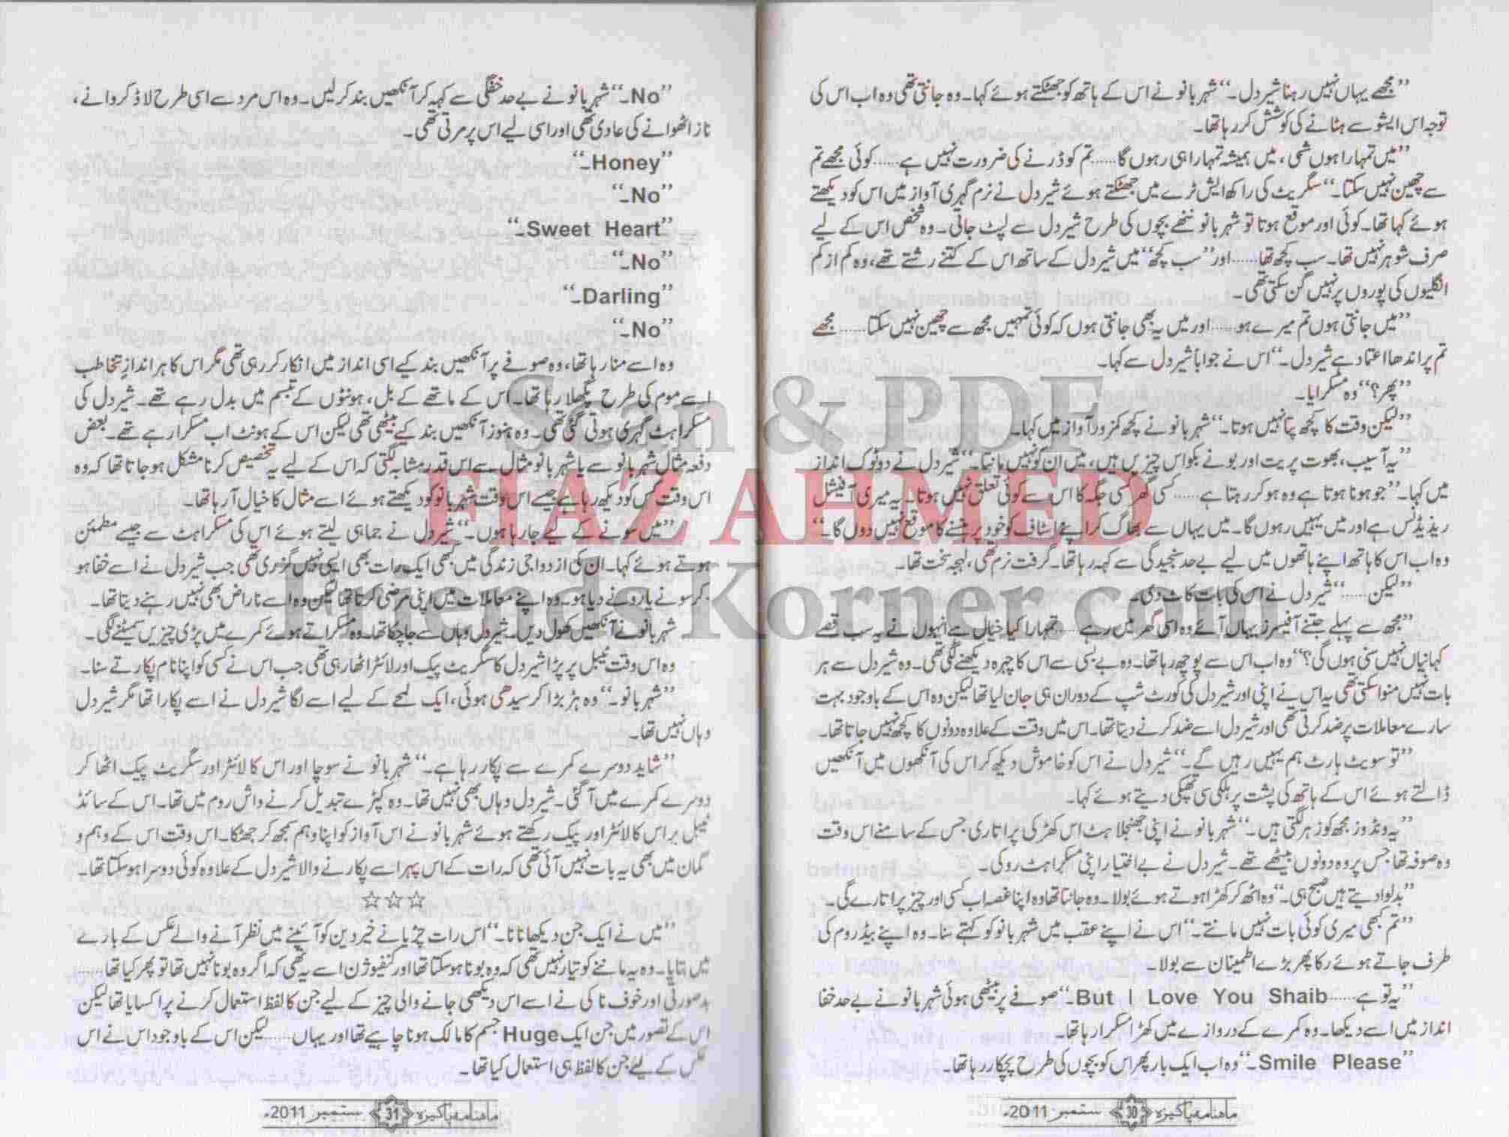 ”مجھے یہاں نہیں رہنا شیردل۔“ شہربانو نے اس کے ہاتھ کو جھٹکتے ہوئے کہا۔ وہ جانتی تھی وہ اب اس کی
توجہ اس ایشو سے ہٹانے کی کوشش کر رہا تھا۔
”میں تمہارا ہوں شبی، میں ہمیشہ تمہارا ہی رہوں گا......تم کو ڈرنے کی ضرورت نہیں ہے......کوئی مجھے تم
سے چھین نہیں سکتا۔“ سگریٹ کی راکھ ایش ٹرے میں جھٹکتے ہوئے شیردل نے نرم گہری آواز میں اس کو دیکھتے
ہوئے کہا تھا۔ کوئی اور موقع ہوتا تو شہربانو ننھے بچوں کی طرح شیردل سے لپٹ جاتی۔ وہ شخص اس کے لیے
صرف شوہر نہیں تھا۔ سب کچھ تھا......اور ”سب کچھ“ میں شیردل کے ساتھ اس کے کتنے رشتے تھے، وہ کم از کم
انگلیوں کی پوروں پر نہیں گن سکتی تھی۔
”میں جانتی ہوں تم میرے ہو......اور میں یہ بھی جانتی ہوں کہ کوئی تمہیں مجھ سے چھین نہیں سکتا......مجھے
تم پر اندھا اعتماد ہے شیردل۔“ اس نے جواباً شیردل سے کہا۔
”پھر؟“ وہ مسکرایا۔
”لیکن وقت کا کچھ پتا نہیں ہوتا۔“ شہربانو نے کچھ کمزور آواز میں کہا۔
”یہ آسیب، بھوت پریت اور بونے بکواس چیزیں ہیں، میں ان کو نہیں مانتا۔“ شیردل نے دوٹوک انداز
میں کہا۔ ”جو ہونا ہوتا ہے وہ ہو کر رہتا ہے......کسی گھر کسی جگہ کا اس سے کوئی تعلق نہیں ہوتا۔ یہ میری آفیشل
ریذیڈنس ہے اور میں یہیں رہوں گا۔ میں یہاں سے بھاگ کر اپنے اسٹاف کو خود پر ہنسنے کا موقع نہیں دوں گا۔“
وہ اب اس کا ہاتھ اپنے ہاتھوں میں لیے بے حد سنجیدگی سے کہہ رہا تھا۔ گرفت نرم تھی، لہجہ سخت تھا۔
”لیکن......“ شیردل نے اس کی بات کاٹ دی۔
”مجھ سے پہلے جتنے آفیسرز یہاں آئے وہ اسی گھر میں رہے......تمہارا کیا خیال ہے انہوں نے یہ سب قصے
کہانیاں نہیں سنی ہوں گی؟“ وہ اب اس سے پوچھ رہا تھا۔ وہ بے بسی سے اس کا چہرہ دیکھنے لگی تھی۔ وہ شیردل سے ہر
بات نہیں منوا سکتی تھی یہ اس نے اپنی اور شیردل کی کورٹ شپ کے دوران ہی جان لیا تھا لیکن وہ اس کے باوجود بہت
سارے معاملات پر ضد کرتی تھی اور شیردل اسے ضد کرنے دیتا تھا۔ اس میں وقت کے علاوہ دونوں کا کچھ نہیں جاتا تھا۔
”تو سویٹ ہارٹ ہم یہیں رہیں گے۔“ شیردل نے اس کو خاموش دیکھ کر اس کی آنکھوں میں آنکھیں
ڈالتے ہوئے اس کے ہاتھ کی پشت پر ہلکی سی تھپکی دیتے ہوئے کہا۔
”یہ ونڈوز مجھ کو زہر لگتی ہیں۔“ شہربانو نے اپنی جھنجلاہٹ اس کھڑکی پر اتاری جس کے سامنے اس وقت
وہ صوفہ تھا جس پر وہ دونوں بیٹھے تھے۔ شیردل نے بے اختیار اپنی مسکراہٹ روکی۔
”بدلوا دیتے ہیں صبح ہی۔“ وہ اٹھ کر کھڑا ہوتے ہوئے بولا۔ وہ جانتا تھا وہ اپنا غصہ اب کسی اور چیز پر اتارے گی۔
”تم کبھی میری کوئی بات نہیں مانتے۔“ اس نے اپنے عقب میں شہربانو کو کہتے سنا۔ وہ اپنے بیڈروم کی
طرف جاتے ہوئے رکا پھر بڑے اطمینان سے بولا۔
”یہ تو ہے......But I Love You Shaib۔“ صوفے پر بیٹھی ہوئی شہربانو نے بے حد خفا
انداز میں اسے دیکھا۔ وہ کمرے کے دروازے میں کھڑا مسکرا رہا تھا۔
”Smile Please۔“ وہ اب ایک بار پھر اس کو بچوں کی طرح پچکار رہا تھا۔
ماہنامہ پاکیزہ 30 ستمبر 2011ء
”No۔“ شہربانو نے بے حد خفگی سے کہہ کر آنکھیں بند کر لیں۔ وہ اس مرد سے اسی طرح لاڈ کروانے،
ناز اٹھوانے کی عادی تھی اور اسی لیے اس پر مرتی تھی۔
”Honey۔“
”No۔“
”Sweet Heart۔“
”No۔“
”Darling۔“
”No۔“
وہ اسے منا رہا تھا، وہ صوفے پر آنکھیں بند کیے اسی انداز میں انکار کر رہی تھی مگر اس کا ہر اندازِ تخاطب
اسے موم کی طرح پگھلا رہا تھا۔ اس کے ماتھے کے بل، ہونٹوں کے تبسم میں بدل رہے تھے۔ شیردل کی
مسکراہٹ گہری ہوتی گئی تھی۔ وہ ہنوز آنکھیں بند کیے بیٹھی تھی لیکن اس کے ہونٹ اب مسکرا رہے تھے۔ بعض
دفعہ مثال شہربانو سے یا شہربانو مثال سے اس قدر مشابہ لگتی کہ اس کے لیے یہ تخصیص کرنا مشکل ہو جاتا تھا کہ وہ
اس وقت کس کو دیکھ رہا ہے جیسے اس وقت شہربانو کو دیکھتے ہوئے اسے مثال کا خیال آ رہا تھا۔
”میں سونے کے لیے جا رہا ہوں۔“ شیردل نے جماہی لیتے ہوئے اس کی مسکراہٹ سے جیسے مطمئن
ہوتے ہوئے کہا۔ ان کی ازدواجی زندگی میں کبھی ایک رات بھی ایسی نہیں گزری تھی جب شیردل نے اسے خفا ہو
کر سونے یا رونے دیا ہو۔ وہ اپنے معاملات میں اپنی مرضی کرتا تھا لیکن وہ اسے ناراض بھی نہیں رہنے دیتا تھا۔
شہربانو نے آنکھیں کھول دیں۔ شیردل وہاں سے جا چکا تھا۔ وہ مسکراتے ہوئے کمرے میں پڑی چیزیں سمیٹنے لگی۔
وہ اس وقت ٹیبل پر پڑا شیردل کا سگریٹ پیک اور لائٹر اٹھا رہی تھی جب اس نے کسی کو اپنا نام پکارتے سنا۔
”شہربانو۔“ وہ ہڑبڑا کر سیدھی ہوئی، ایک لمحے کے لیے اسے لگا شیردل نے اسے پکارا تھا مگر شیردل
وہاں نہیں تھا۔
”شاید دوسرے کمرے سے پکار رہا ہے۔“ شہربانو نے سوچا اور اس کا لائٹر اور سگریٹ پیک اٹھا کر
دوسرے کمرے میں آ گئی۔ شیردل وہاں بھی نہیں تھا۔ وہ کپڑے تبدیل کرنے واش روم میں تھا۔ اس کے سائڈ
ٹیبل پر اس کا لائٹر اور پیک رکھتے ہوئے شہربانو نے اس آواز کو اپنا وہم سمجھ کر جھٹکا۔ اس وقت اس کے وہم و
گمان میں بھی یہ بات نہیں آئی تھی کہ رات کے اس پہر اسے پکارنے والا شیردل کے علاوہ کوئی دوسرا ہو سکتا تھا۔
☆☆☆
”میں نے ایک جن دیکھا نانا۔“ اس رات چڑیا نے خیردین کو آئینے میں نظر آنے والے عکس کے بارے
میں بتایا۔ وہ یہ ماننے کو تیار نہیں تھی کہ وہ بونا ہو سکتا تھا اور کنفیوژن اسے یہ تھی کہ اگر وہ بونا نہیں تھا تو پھر کیا تھا......
بدصورتی اور خوفناکی نے اسے اس دیکھی جانے والی چیز کے لیے جن کا لفظ استعمال کرنے پر اکسایا تھا لیکن
اس کے تصور میں جن ایک Huge جسم کا مالک ہونا چاہیے تھا اور یہاں......لیکن اس کے باوجود اس نے اس
عکس کے لیے جن کا لفظ ہی استعمال کیا تھا۔
ماہنامہ پاکیزہ 31 ستمبر 2011ء
Scan & PDF
FIAZ AHMED
Friends Korner.com